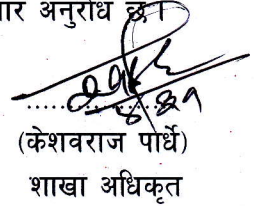 अनुरोध छ।
(केशवराज पार्धे)
शाखा अधिकृत